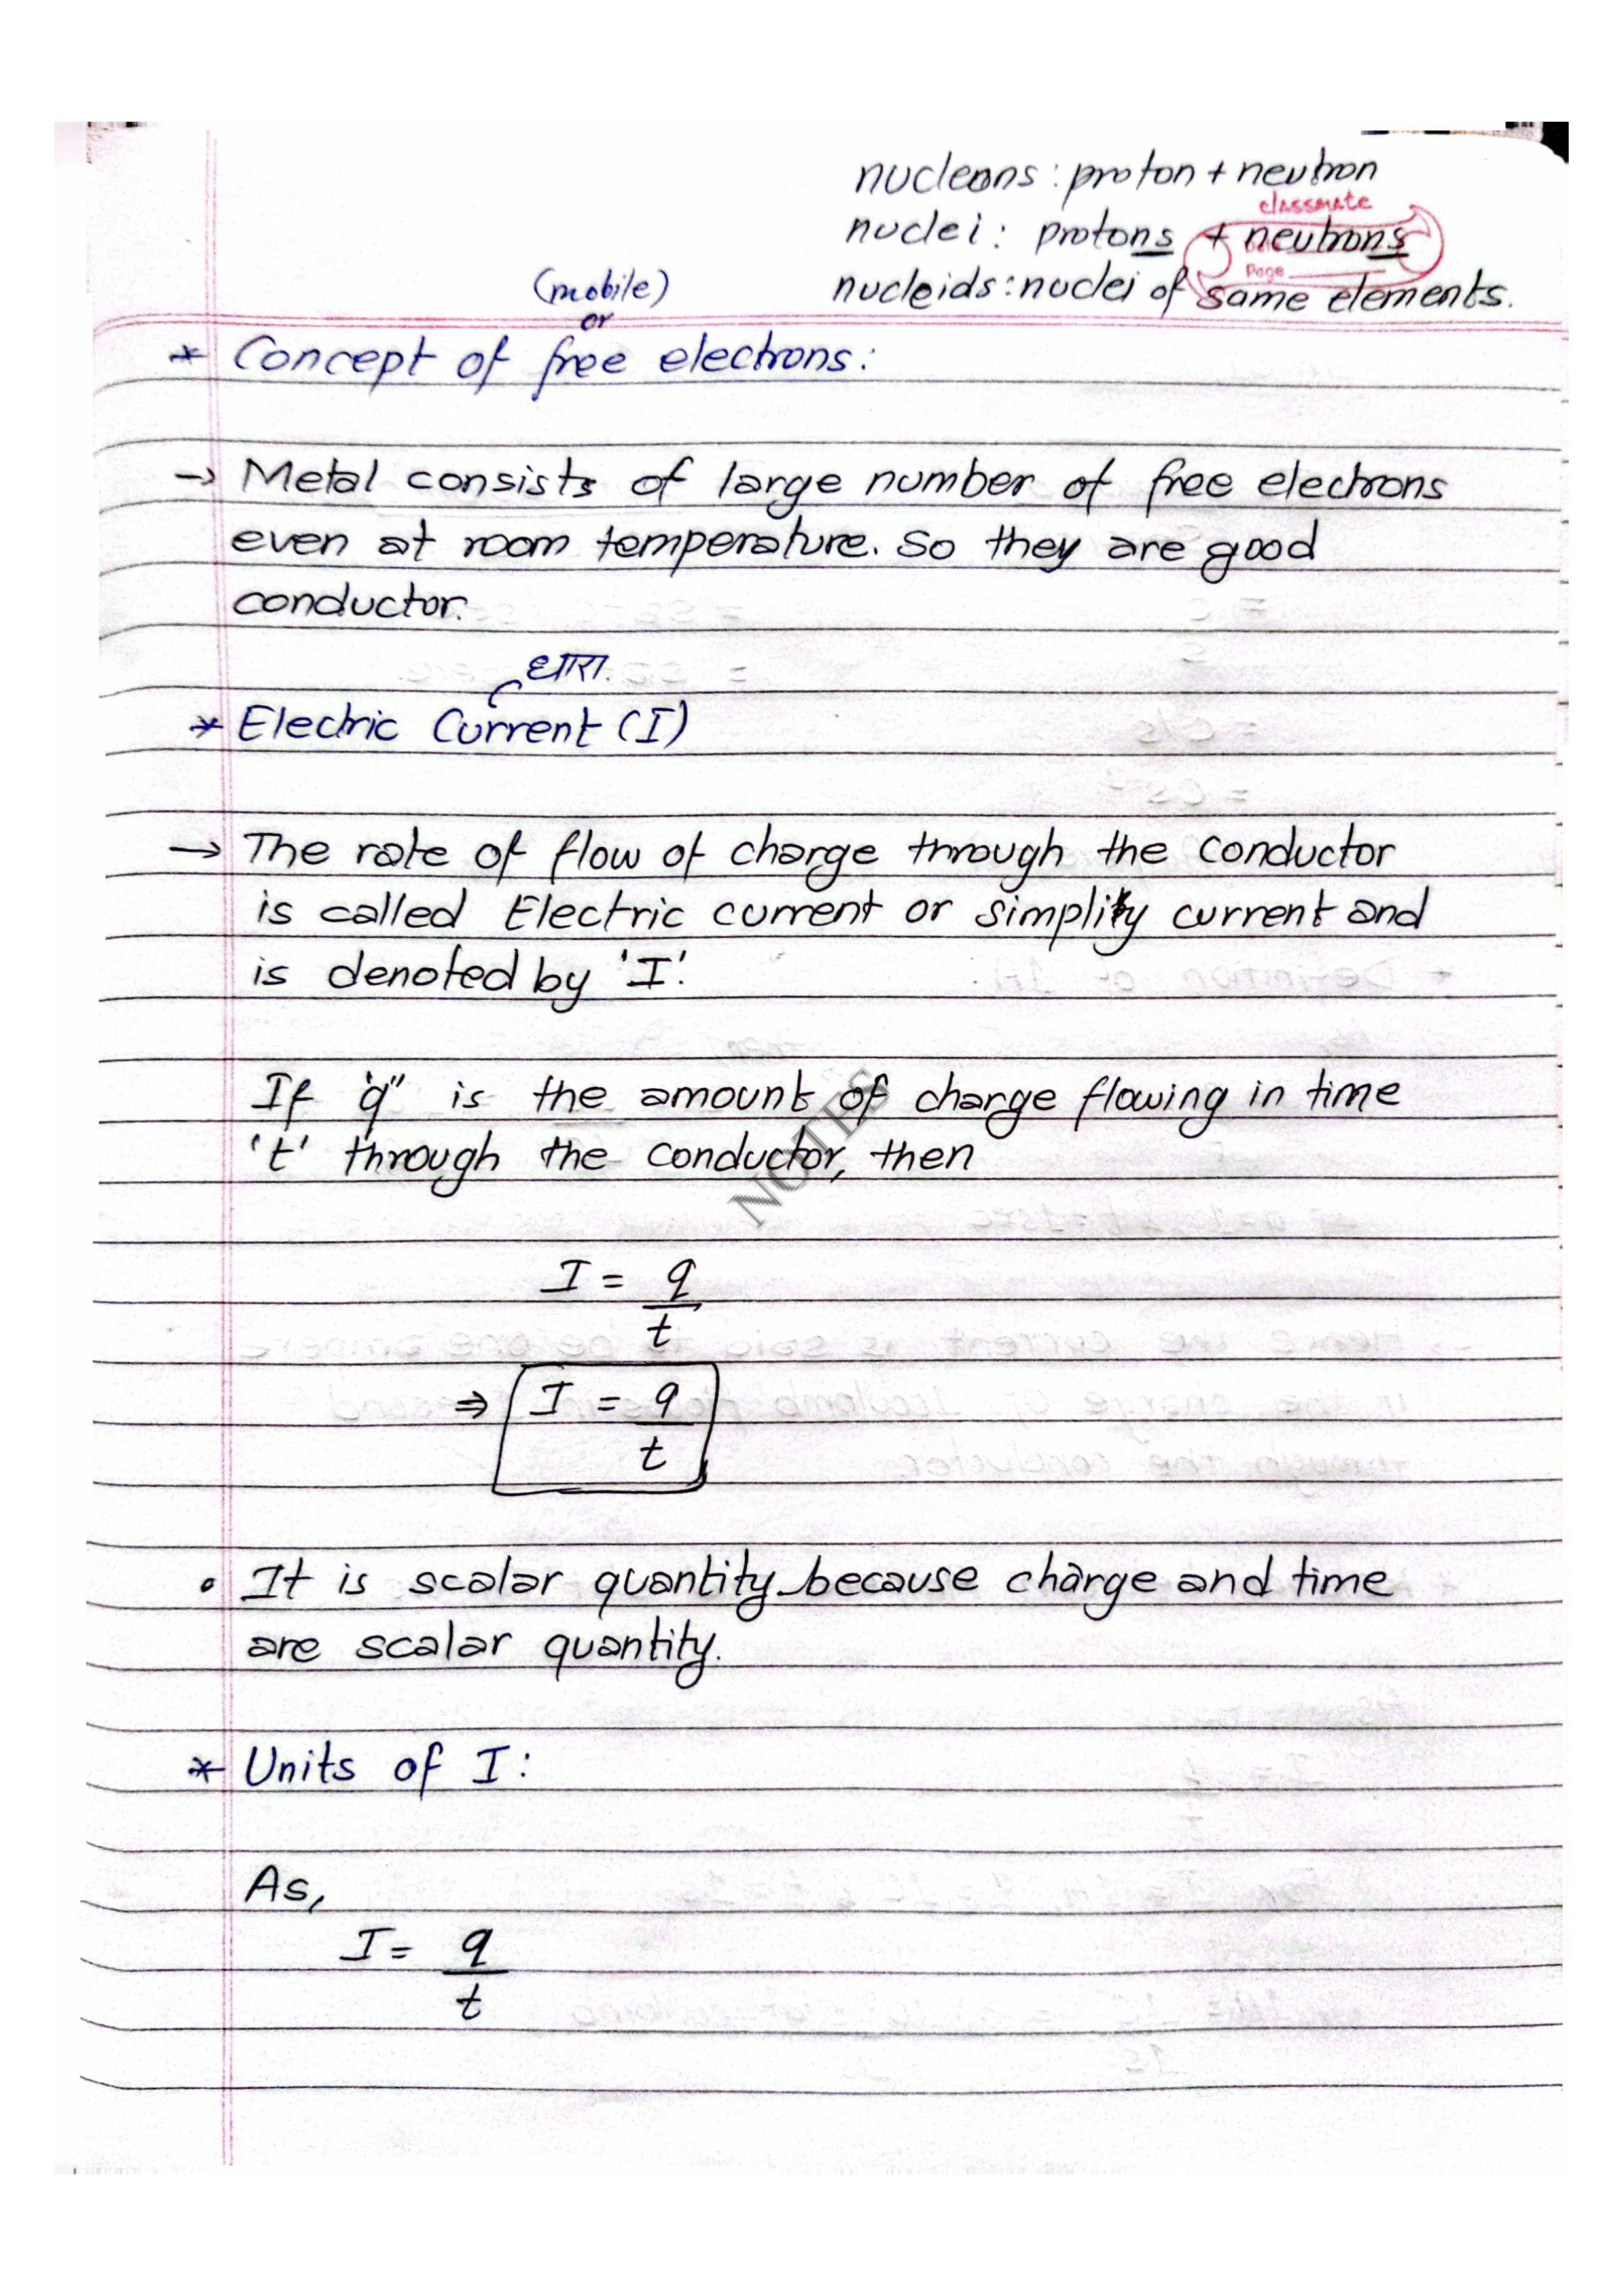 nucleons : proton + neutron
classmate
nuclei : protons + neutrons
Page
nucleids : nuclei of same elements.
(mobile)
or
* Concept of free electrons :
→ Metal consists of large number of free electrons
even at room temperature. So they are good
conductor.
धारा.
* Electric Current (I)
→ The rate of flow of charge through the conductor
is called Electric current or simplity current and
is denoted by 'I'.
If 'q" is the amount of charge flowing in time
't' through the conductor, then
NOTES
I = q
t
⇒ I = q
t
• It is scalar quantity because charge and time
are scalar quantity.
* Units of I :
As,
I = q
t